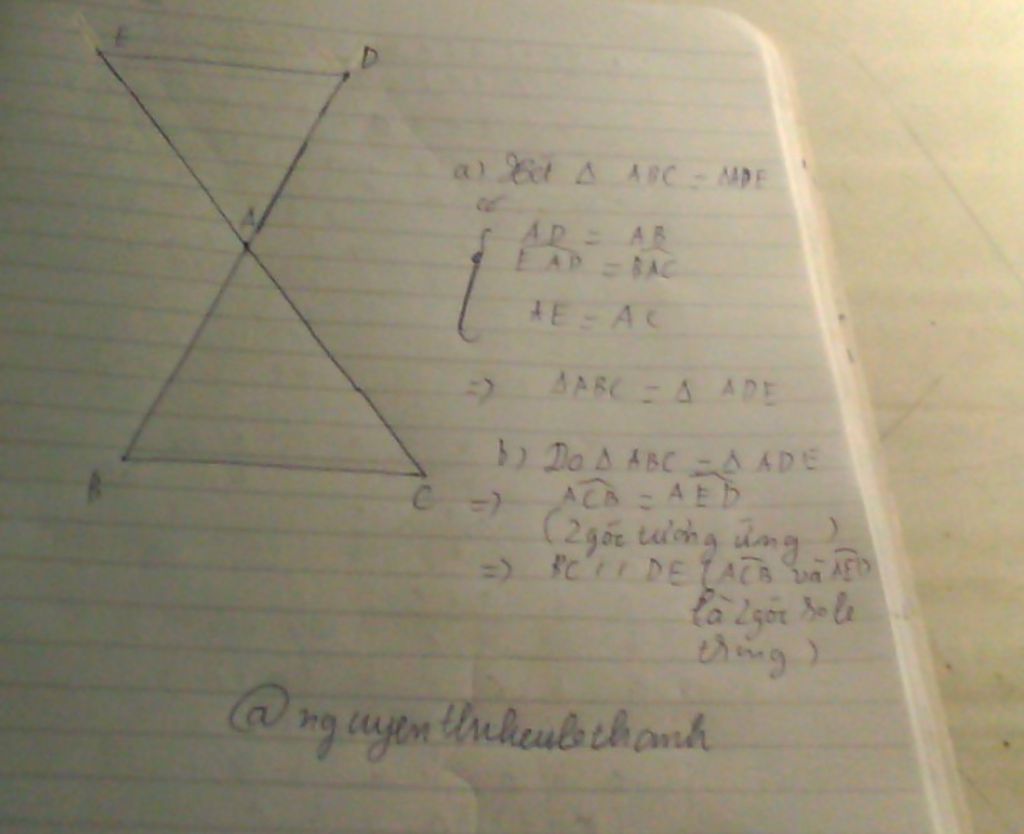 E
D
A
B
C
a) Xét Δ ABC = ΔADE
có
AD = AB
EAD = BAC
AE = AC
=> ΔABC = Δ ADE
b) Do Δ ABC = Δ ADE
=> ACB = AED
(2 góc tương ứng)
=> BC // DE (ACB và AED
là 2 góc so le
trong)